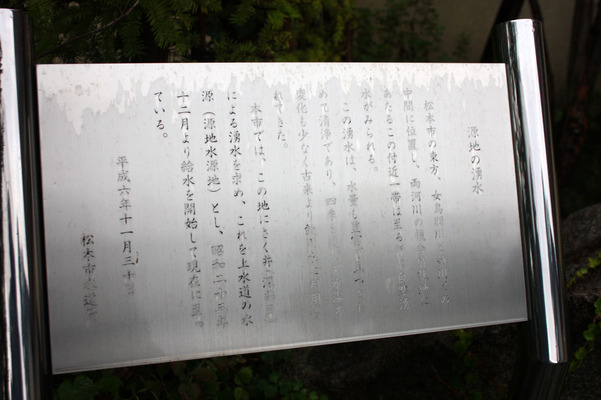 源地の湧水
松本市の東方、女鳥羽川と
中間に位置し、両河川の複合扇状地に
あたるこの付近一帯は至る
水がみられる。
この湧水は、水量も豊富で
めて清浄であり、四季
変化も少なく古来より
れてきた。
本市では、この地にさく井
による湧水を求め、これを上水道の水
源（源地水源地）とし、昭和二十三年
十二月より給水を開始して現在に至っ
ている。
平成六年十一月三十日
松本市水道